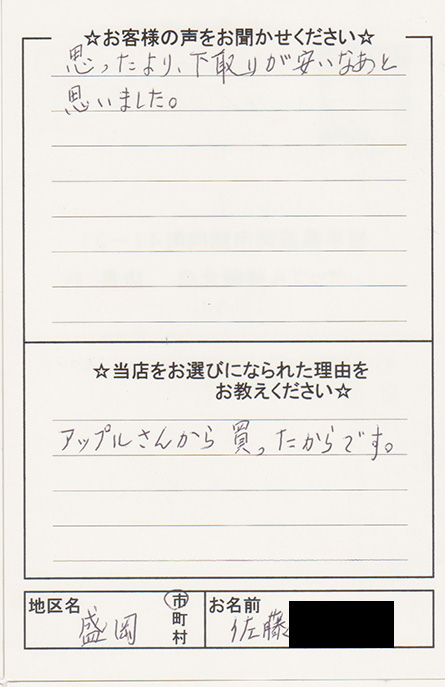 ☆お客様の声をお聞かせください☆
思ったより、下取りが安いなあと
思いました。
☆当店をお選びになられた理由を
お教えください☆
アップルさんから買ったからです。
地区名 盛岡 市
町
村
お名前 佐藤